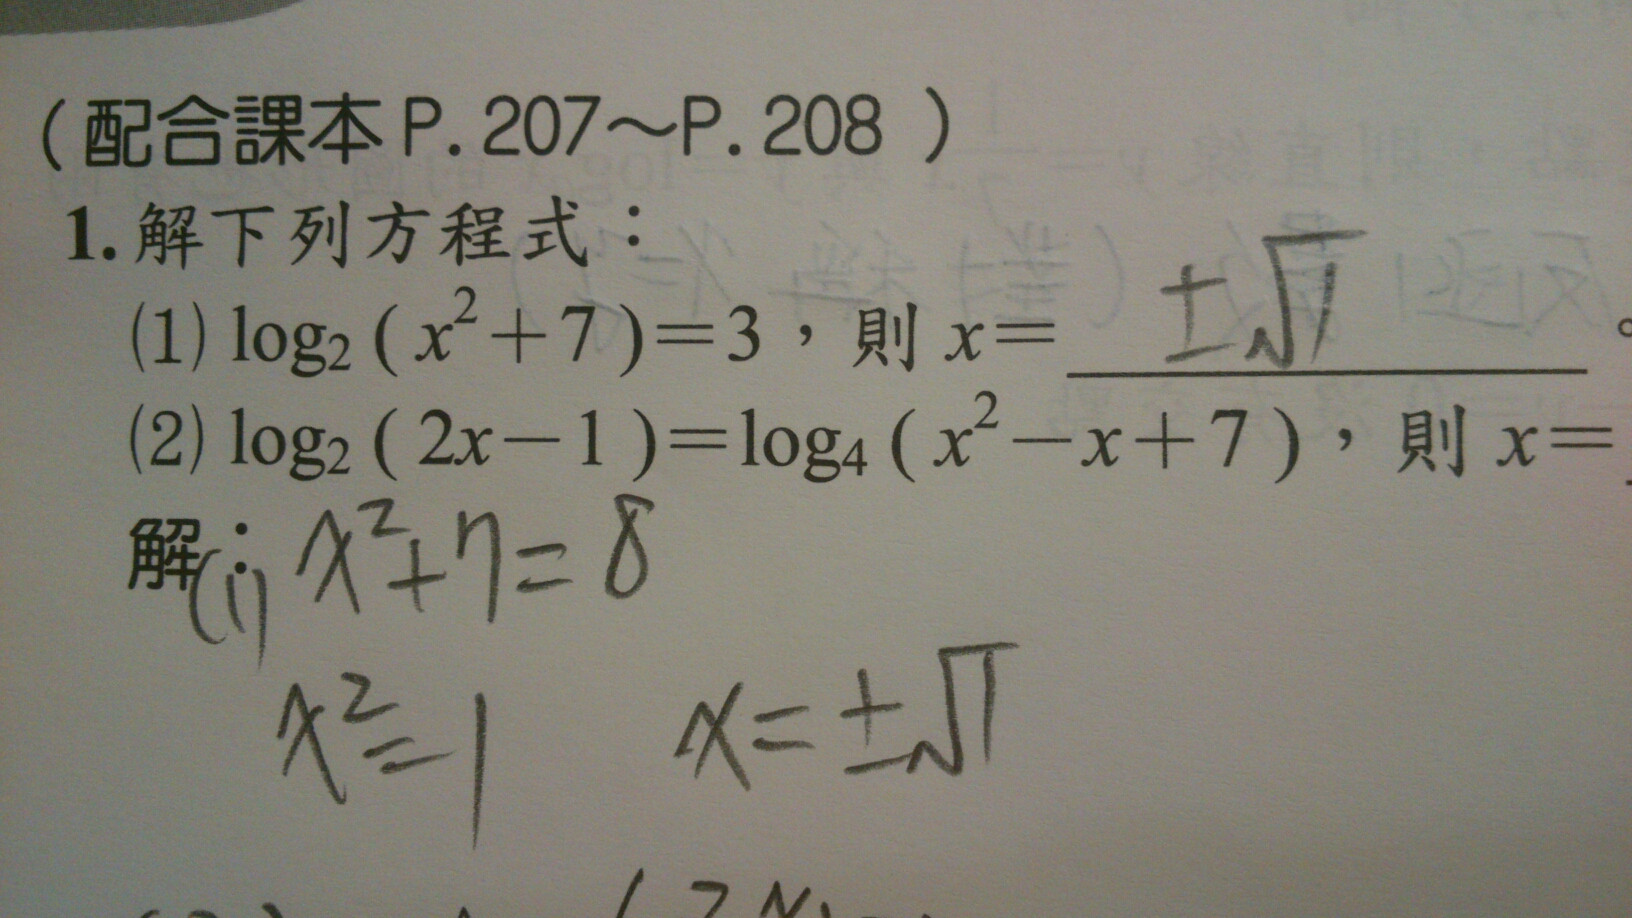 （配合課本 P. 207～P. 208）
1. 解下列方程式：
(1) log₂ ( x² + 7 ) = 3，則 x = ±√1 。
(2) log₂ ( 2x − 1 ) = log₄ ( x² − x + 7 )，則 x =
解：(1) x² + 7 = 8
x² = 1 x = ±√1